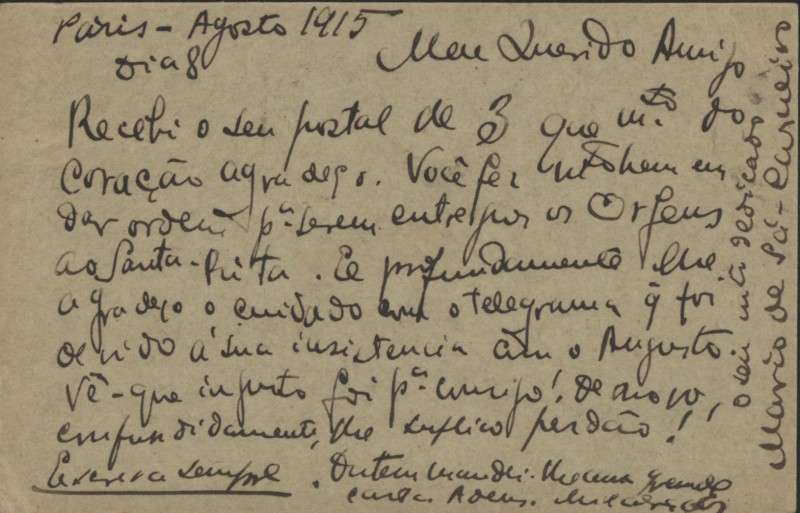 Paris - Agosto 1915
Dia 8
Meu Querido Amigo
Recebi o seu postal de 3 que mto do
coração agradeço. Você fez mto bem em
dar ordem pa serem entregues os Orfeus
ao Santa-Rita. E profundamente lhe
agradeço o cuidado com o telegrama q foi
devido á sua insistencia com o Augusto.
Vê-que injusto fui pa comsigo! De novo,
confundidamente, lhe suplico perdão!
Escreva sempre. Ontem mandei-lhe uma grande
carta. Adeus.
o seu mto dedicado
Mario de Sá-Carneiro